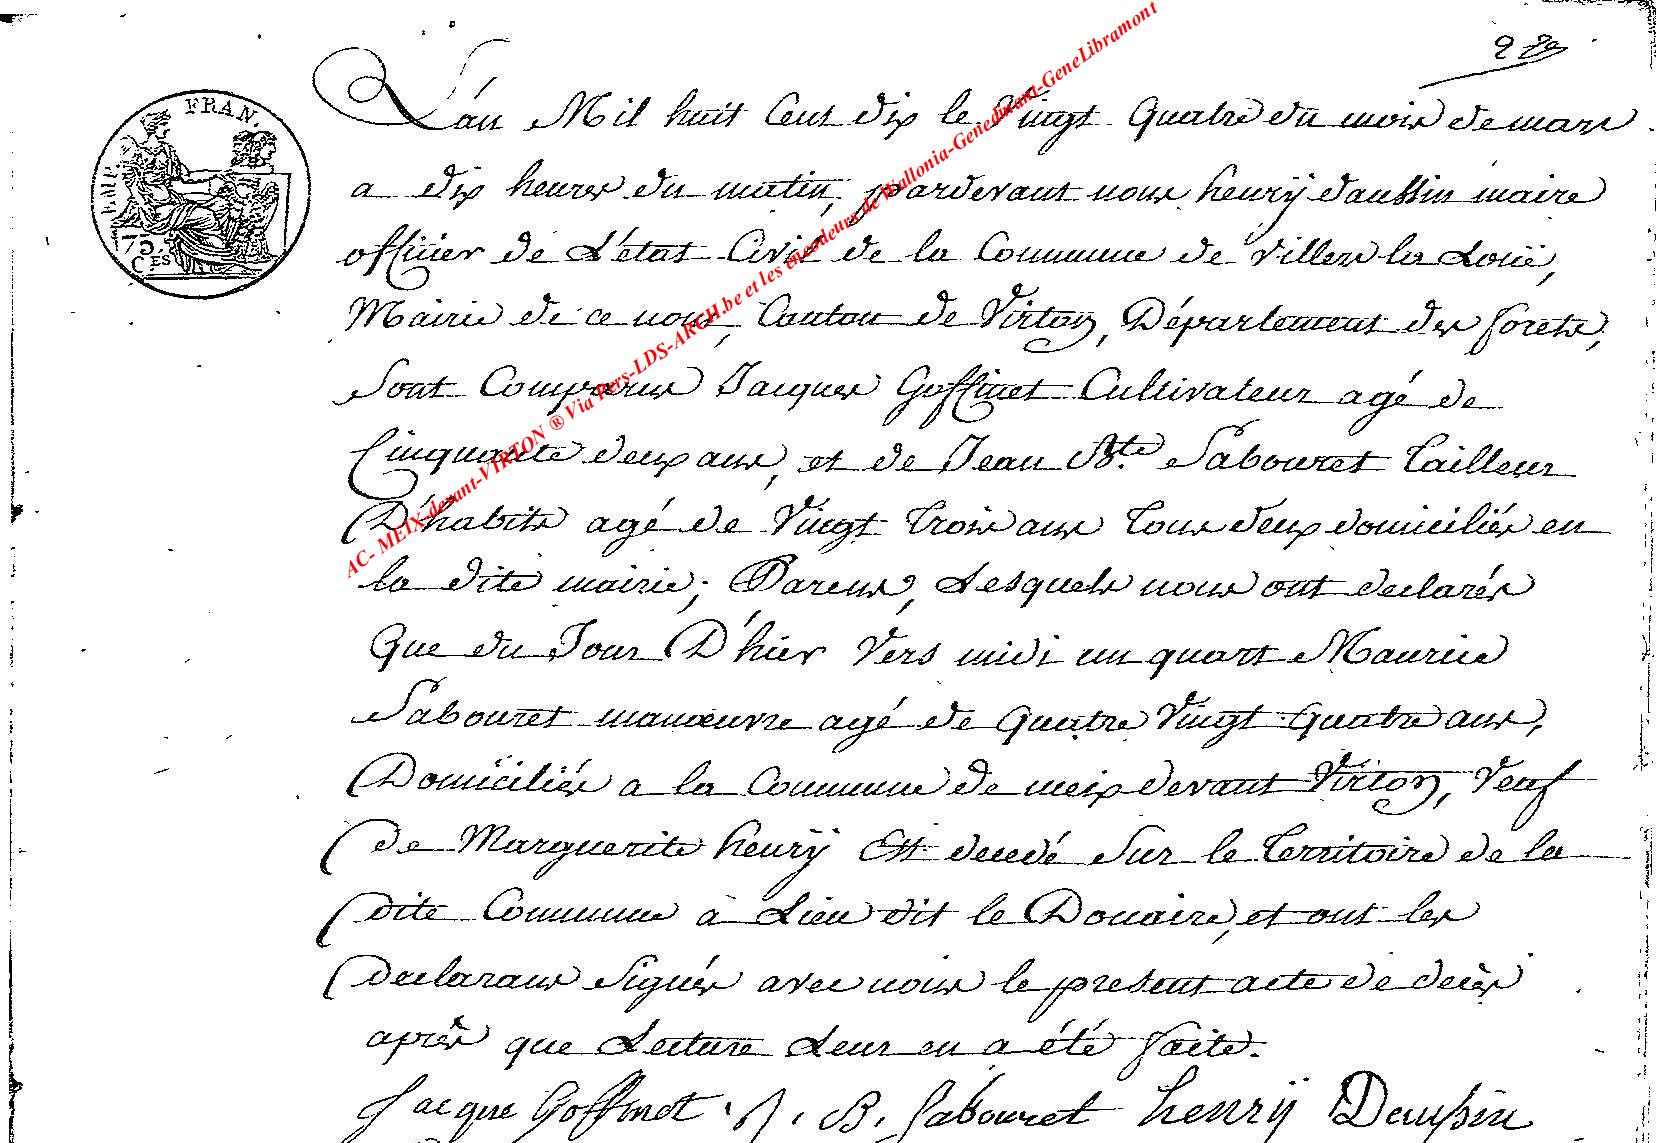 FRAN.
EMP.
75
CES
L'an Mil huit Cent dix le Vingt Quatre du mois de mars
a dix heures du matin, pardevant nous henrÿ daussin maire
officier de L'état Civil de la Commune de Villers la Loüe,
Mairie de ce nom, Canton de Virton, Département des forets,
Sont Comparus Jacques Goffinet Cultivateur agé de
Cinquante deux ans, et de Jean Bte. Sabouret Tailleur
D'habits agé de Vingt Trois ans Tous deux domiciliés en
la dite mairie; Parens, Lesquels nous ont declarés
Que du Jour D'hier Vers midi un quart Maurice
Sabouret manœuvre agé de Quatre Vingt Quatre ans,
Domiciliés a la Commune de meix devant Virton, Veuf
de Marguerite henrÿ Est decedé Sur le Territoire de la
dite Commune à Lieu dit le Douaire, et ont les
declarans Signés avec nous le present acte de decès
après que Lecture Leur en a été faite.
Jacque Goffinet J. B. Sabouret henrÿ Daussin
AC- MEIX-devant-VIRTON ® Via Pers-LDS-ARCH.be et les encodeurs de Wallonia-Genedinant-GeneLibramont